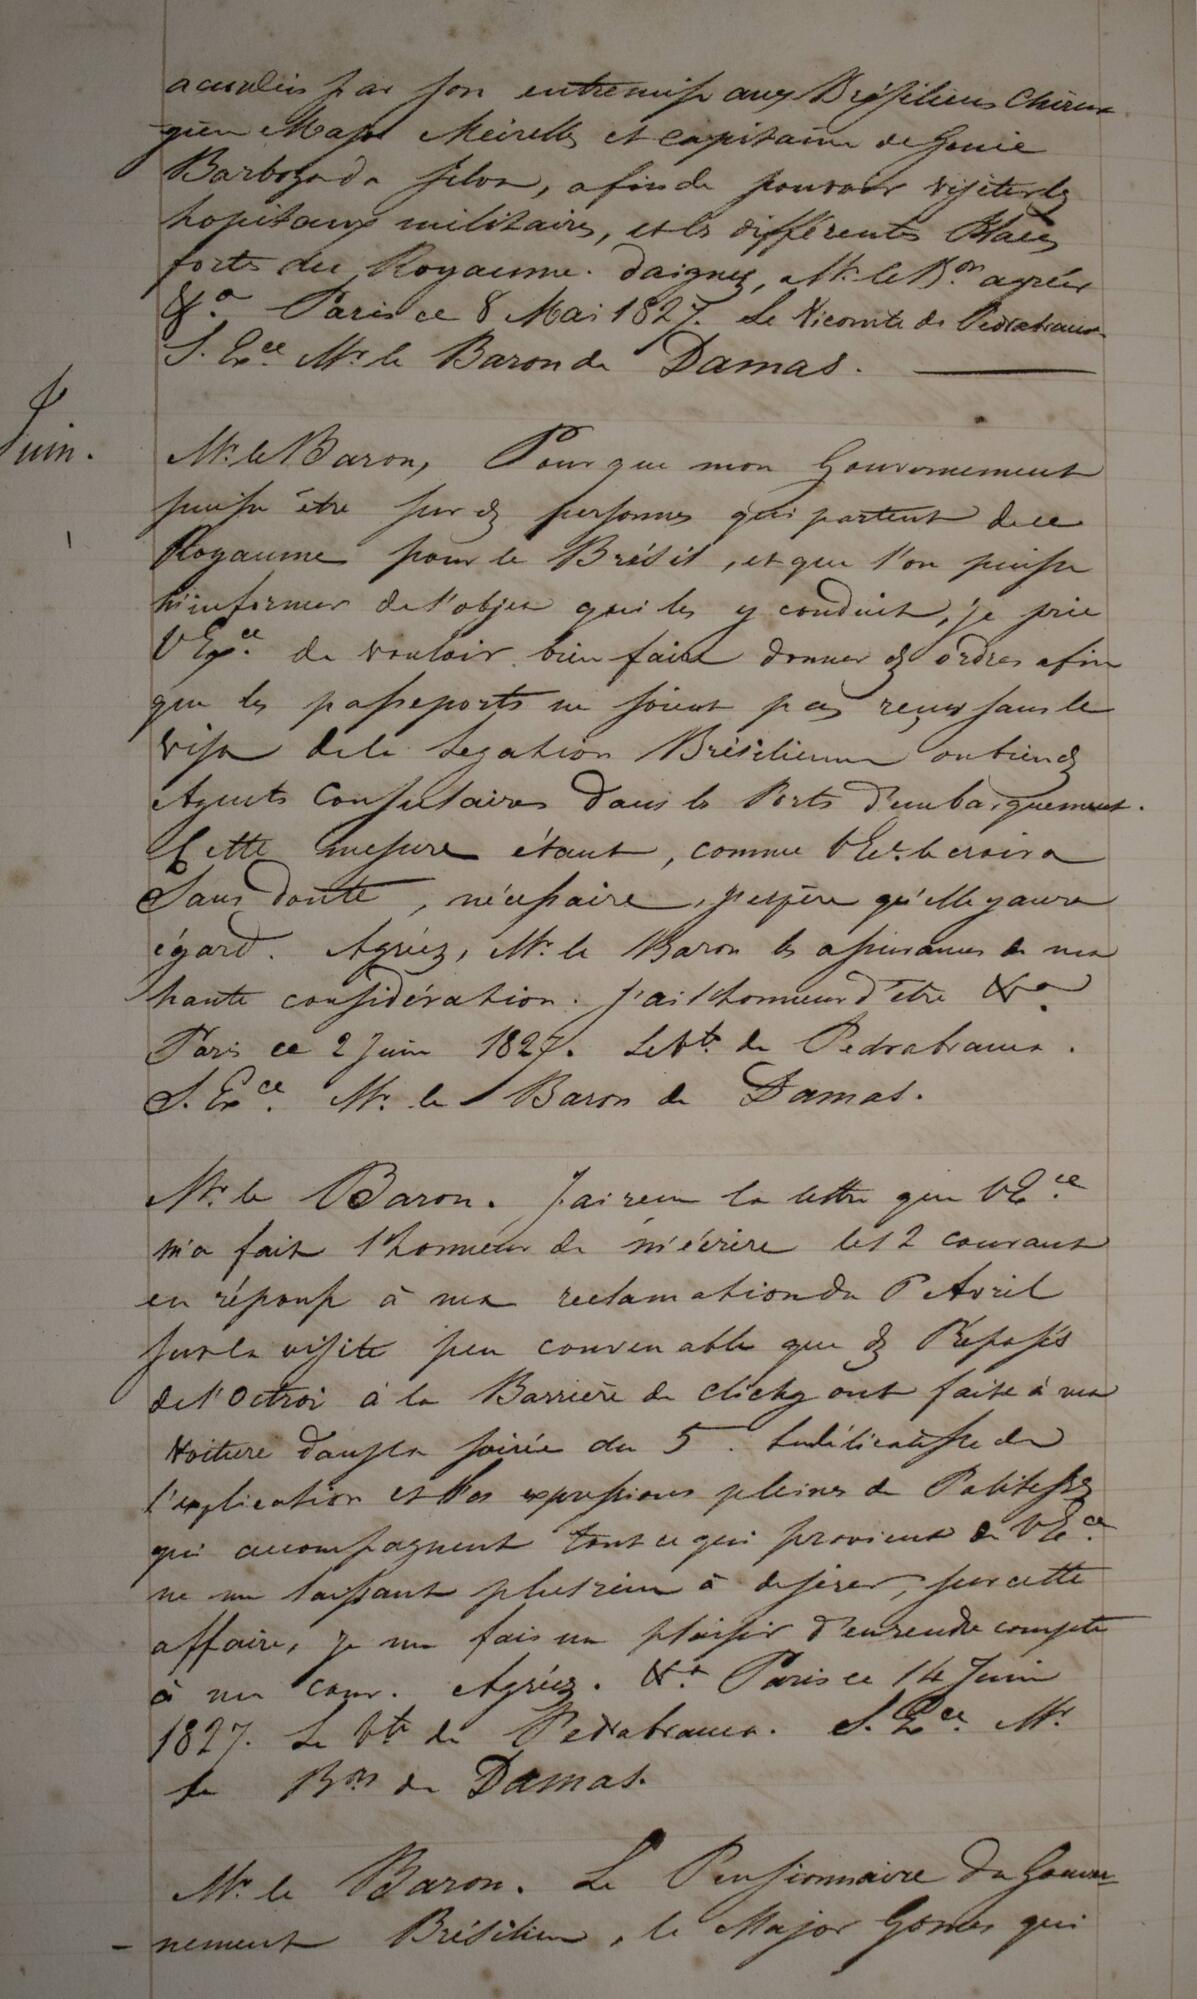 accordées par son entremise aux Brésiliens Chirur
gien Major Meirelles et capitaine de Genie
Barboza da Silva, afin de pouvoir visiter les
hopitaux militaires, et les différentes Places
fortes du Royaume. Daignez, Mr. le Bon. agréer
&a. Paris ce 8 Mai 1827. Le Vicomte de Pedrabranca
S. Exce. Mr. le Baron de Damas.
Juin.
Mr. le Baron, Pour que mon Gouvernement
puisse être sur des personnes qui partent de ce
Royaume pour le Brésil, et que l'on puisse
m'informer de l'objet qui les y conduit, je prie
V Exce. de vouloir bien faire donner des ordres afin
que les passeports ne soient pas reçus sans le
visa de la Legation Brésilienne ou bien des
Agents Consulaires dans les Ports d'embarquement.
Cette mesure étant, comme V Ece. le croira
Sans doute, nécessaire, j'espère qu'elle y aura
égard. Agréez, Mr. le Baron les assurances de ma
haute considération. J'ai l'honneur d'être &a.
Paris ce 2 Juin 1827. Le Vte. de Pedrabranca.
S. Exce. Mr. le Baron de Damas.
Mr. le Baron. J'ai reçu la lettre que V Ece
m'a fait l'honneur de m'écrire le 12 courant
en réponse à ma reclamation du Avril
sur la visite peu convenable que des Préposés
de l'Octroi à la Barrière de Clichy ont faite à ma
Voiture dans la soirée du 5. La délicatesse de
l'explication et les expressions pleines de Politesse
qui accompagnent tout ce qui provient de V Ece.
ne me laissant plus rien à desirer, sur cette
affaire, je me fais un plaisir d'en rendre compte
à ma cour. Agréez. &a. Paris ce 14 Juin
1827. Le Vte de Pedrabranca. S. Ece. Mr.
le Bon de Damas.
Mr. le Baron. Le Pensionnaire du Gouver-
-nement Brésilien, le Major Gomes qui